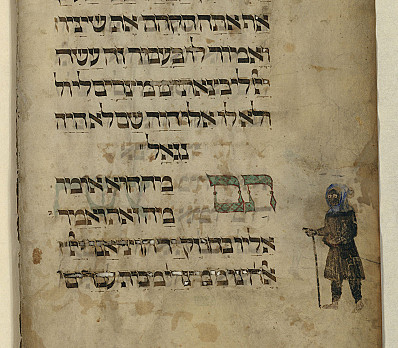 אתה הקהה את שיניו
ואמור לו בעבור זה עשה
יי לי בצאתי ממצרים לי ול
ולא לו אלו היה שם לא היה
נגאל
תם מה הוא אומר
מה זאת ואמרת
אליו בחוזק יד הוציאנו יי
ממצרים מבית עבדים